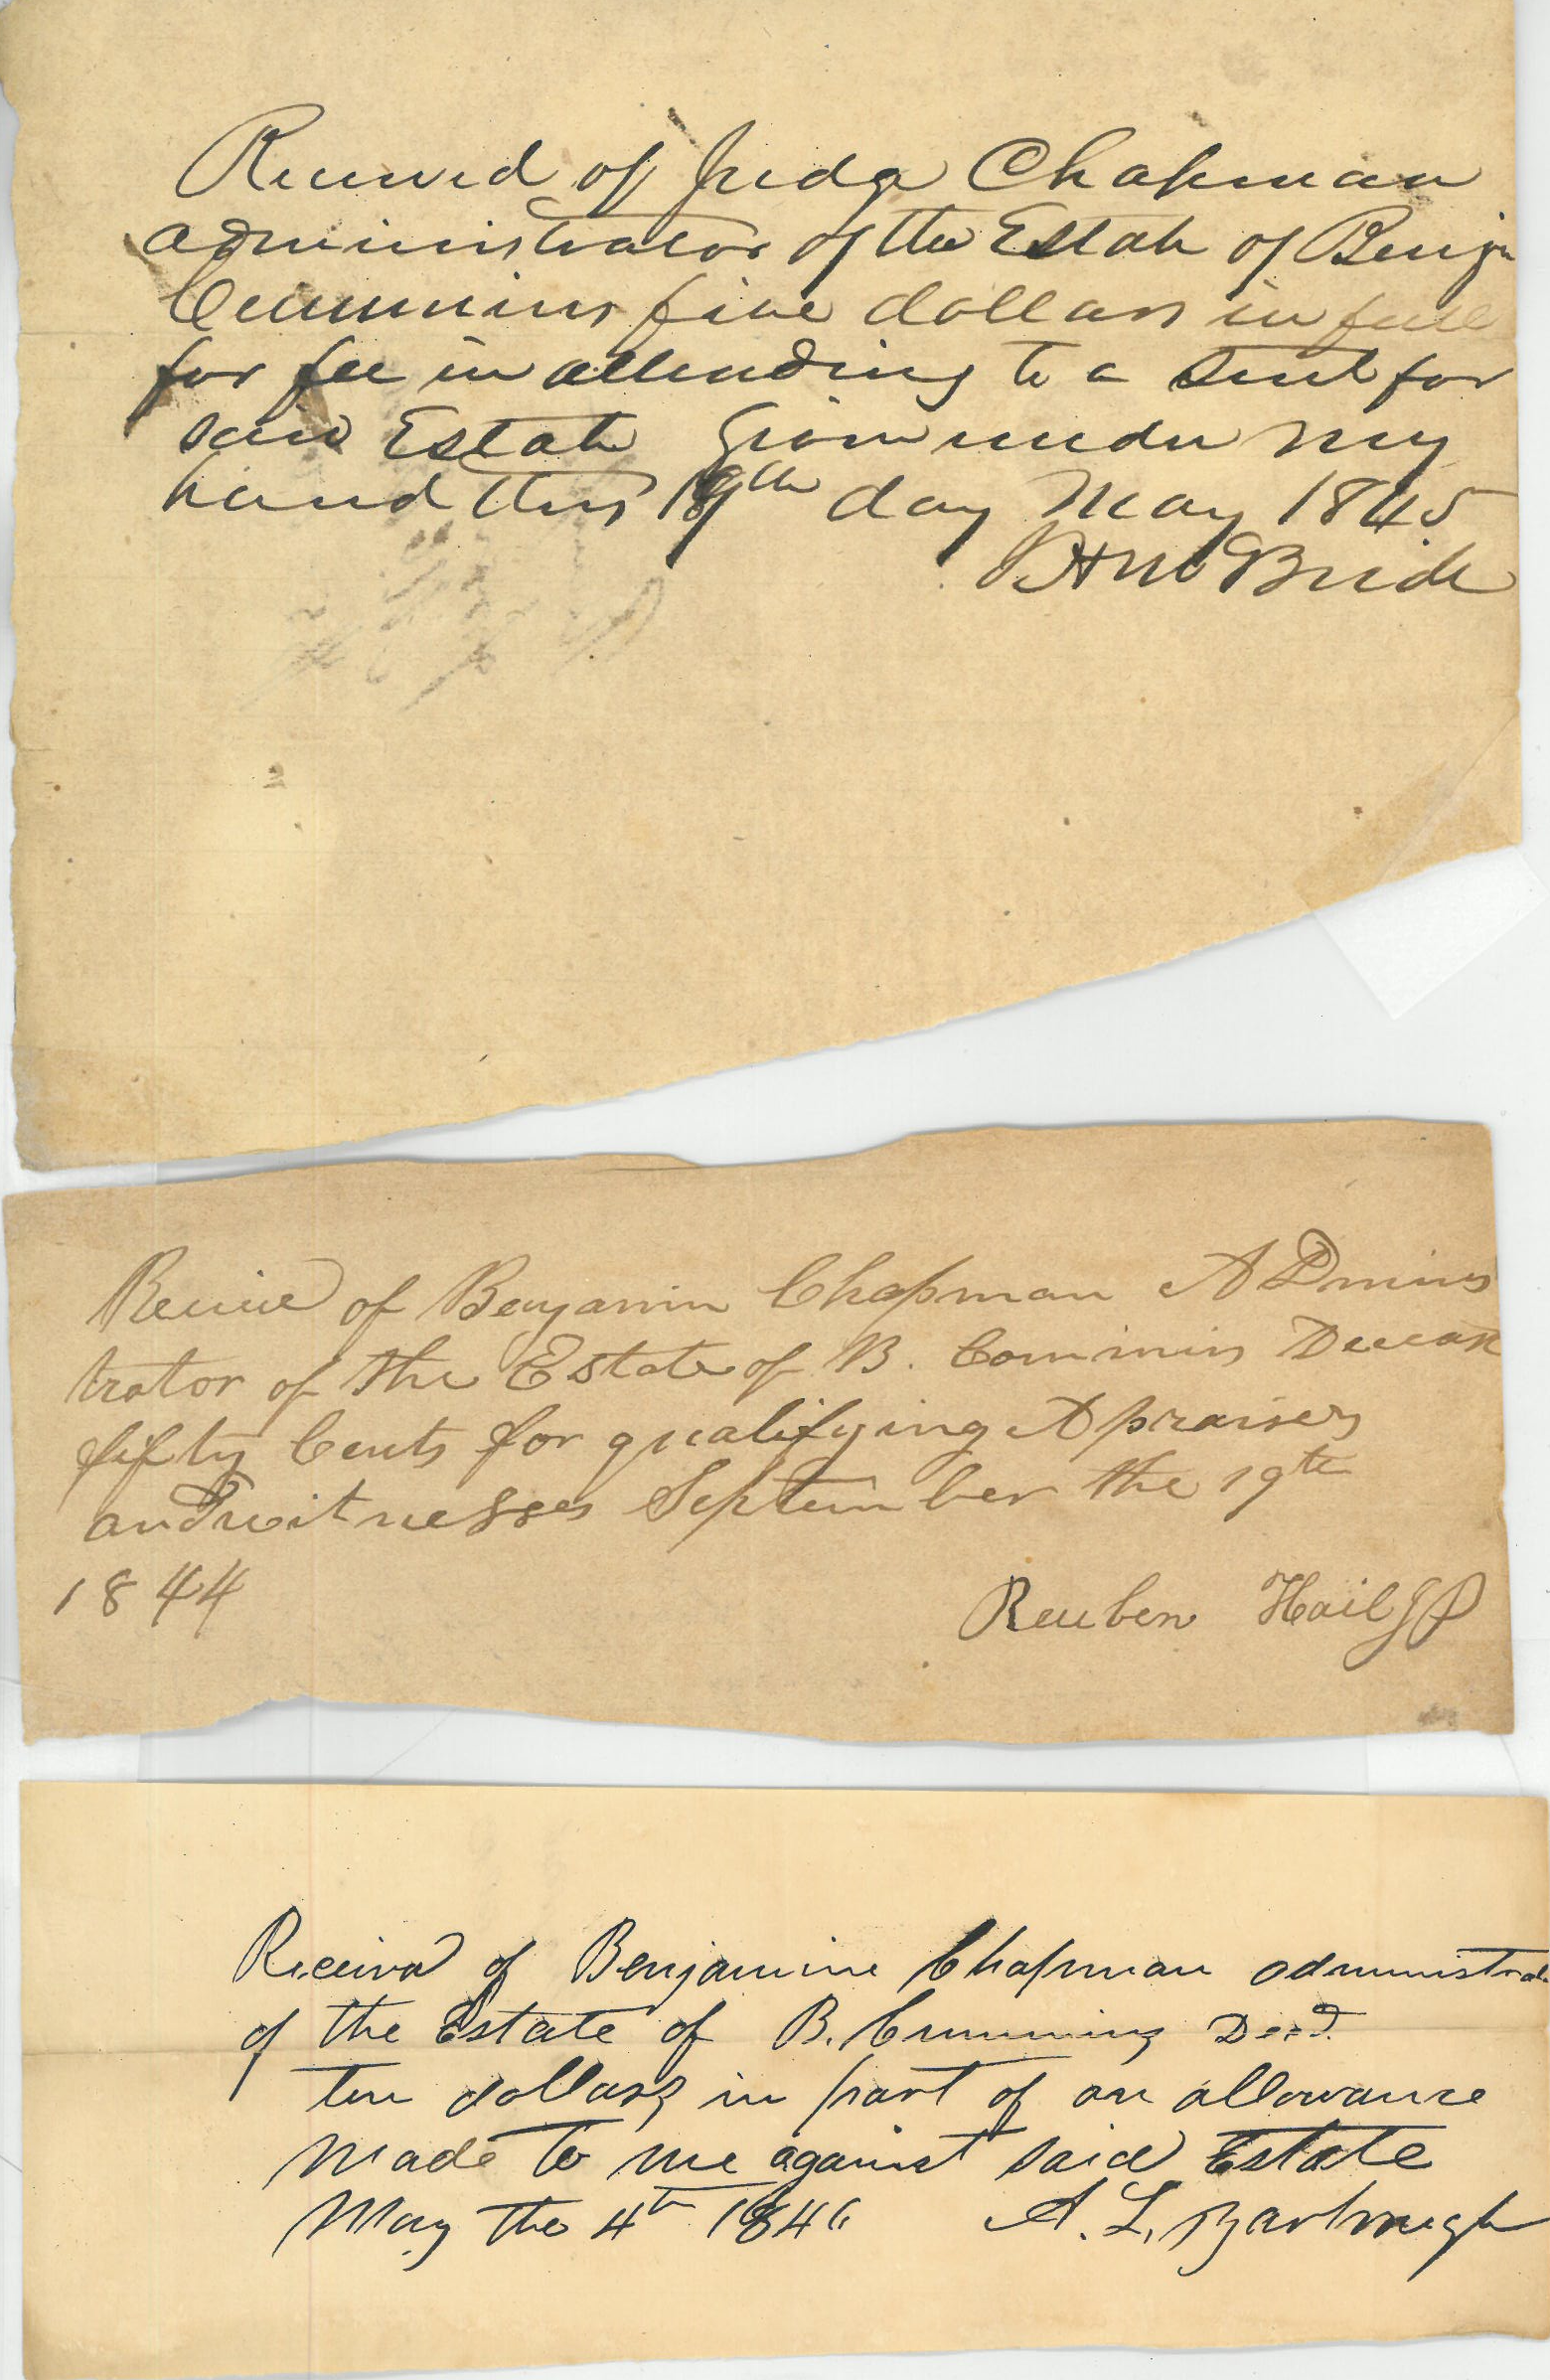 Received of Judge Chapman
administrator of the Estate of Benjn
Cummins five dollars in full
for fee in attending to a suit for
said Estate Given under my
hand this 19th day May 1845
McBride
Receive of Benjamin Chapman ADminis
trator of the Estate of B. Commins Deceas
fifty Cents for qualifying Apraisers
and witnesses September the 19th
1844
Reuben Hail JP
Received of Benjamine Chapman administrat
of the Estate of B. Cummins Decd.
ten dollars in part of an allowance
made to me against said Estate
May the 4th 1846 A. L. Barbrough